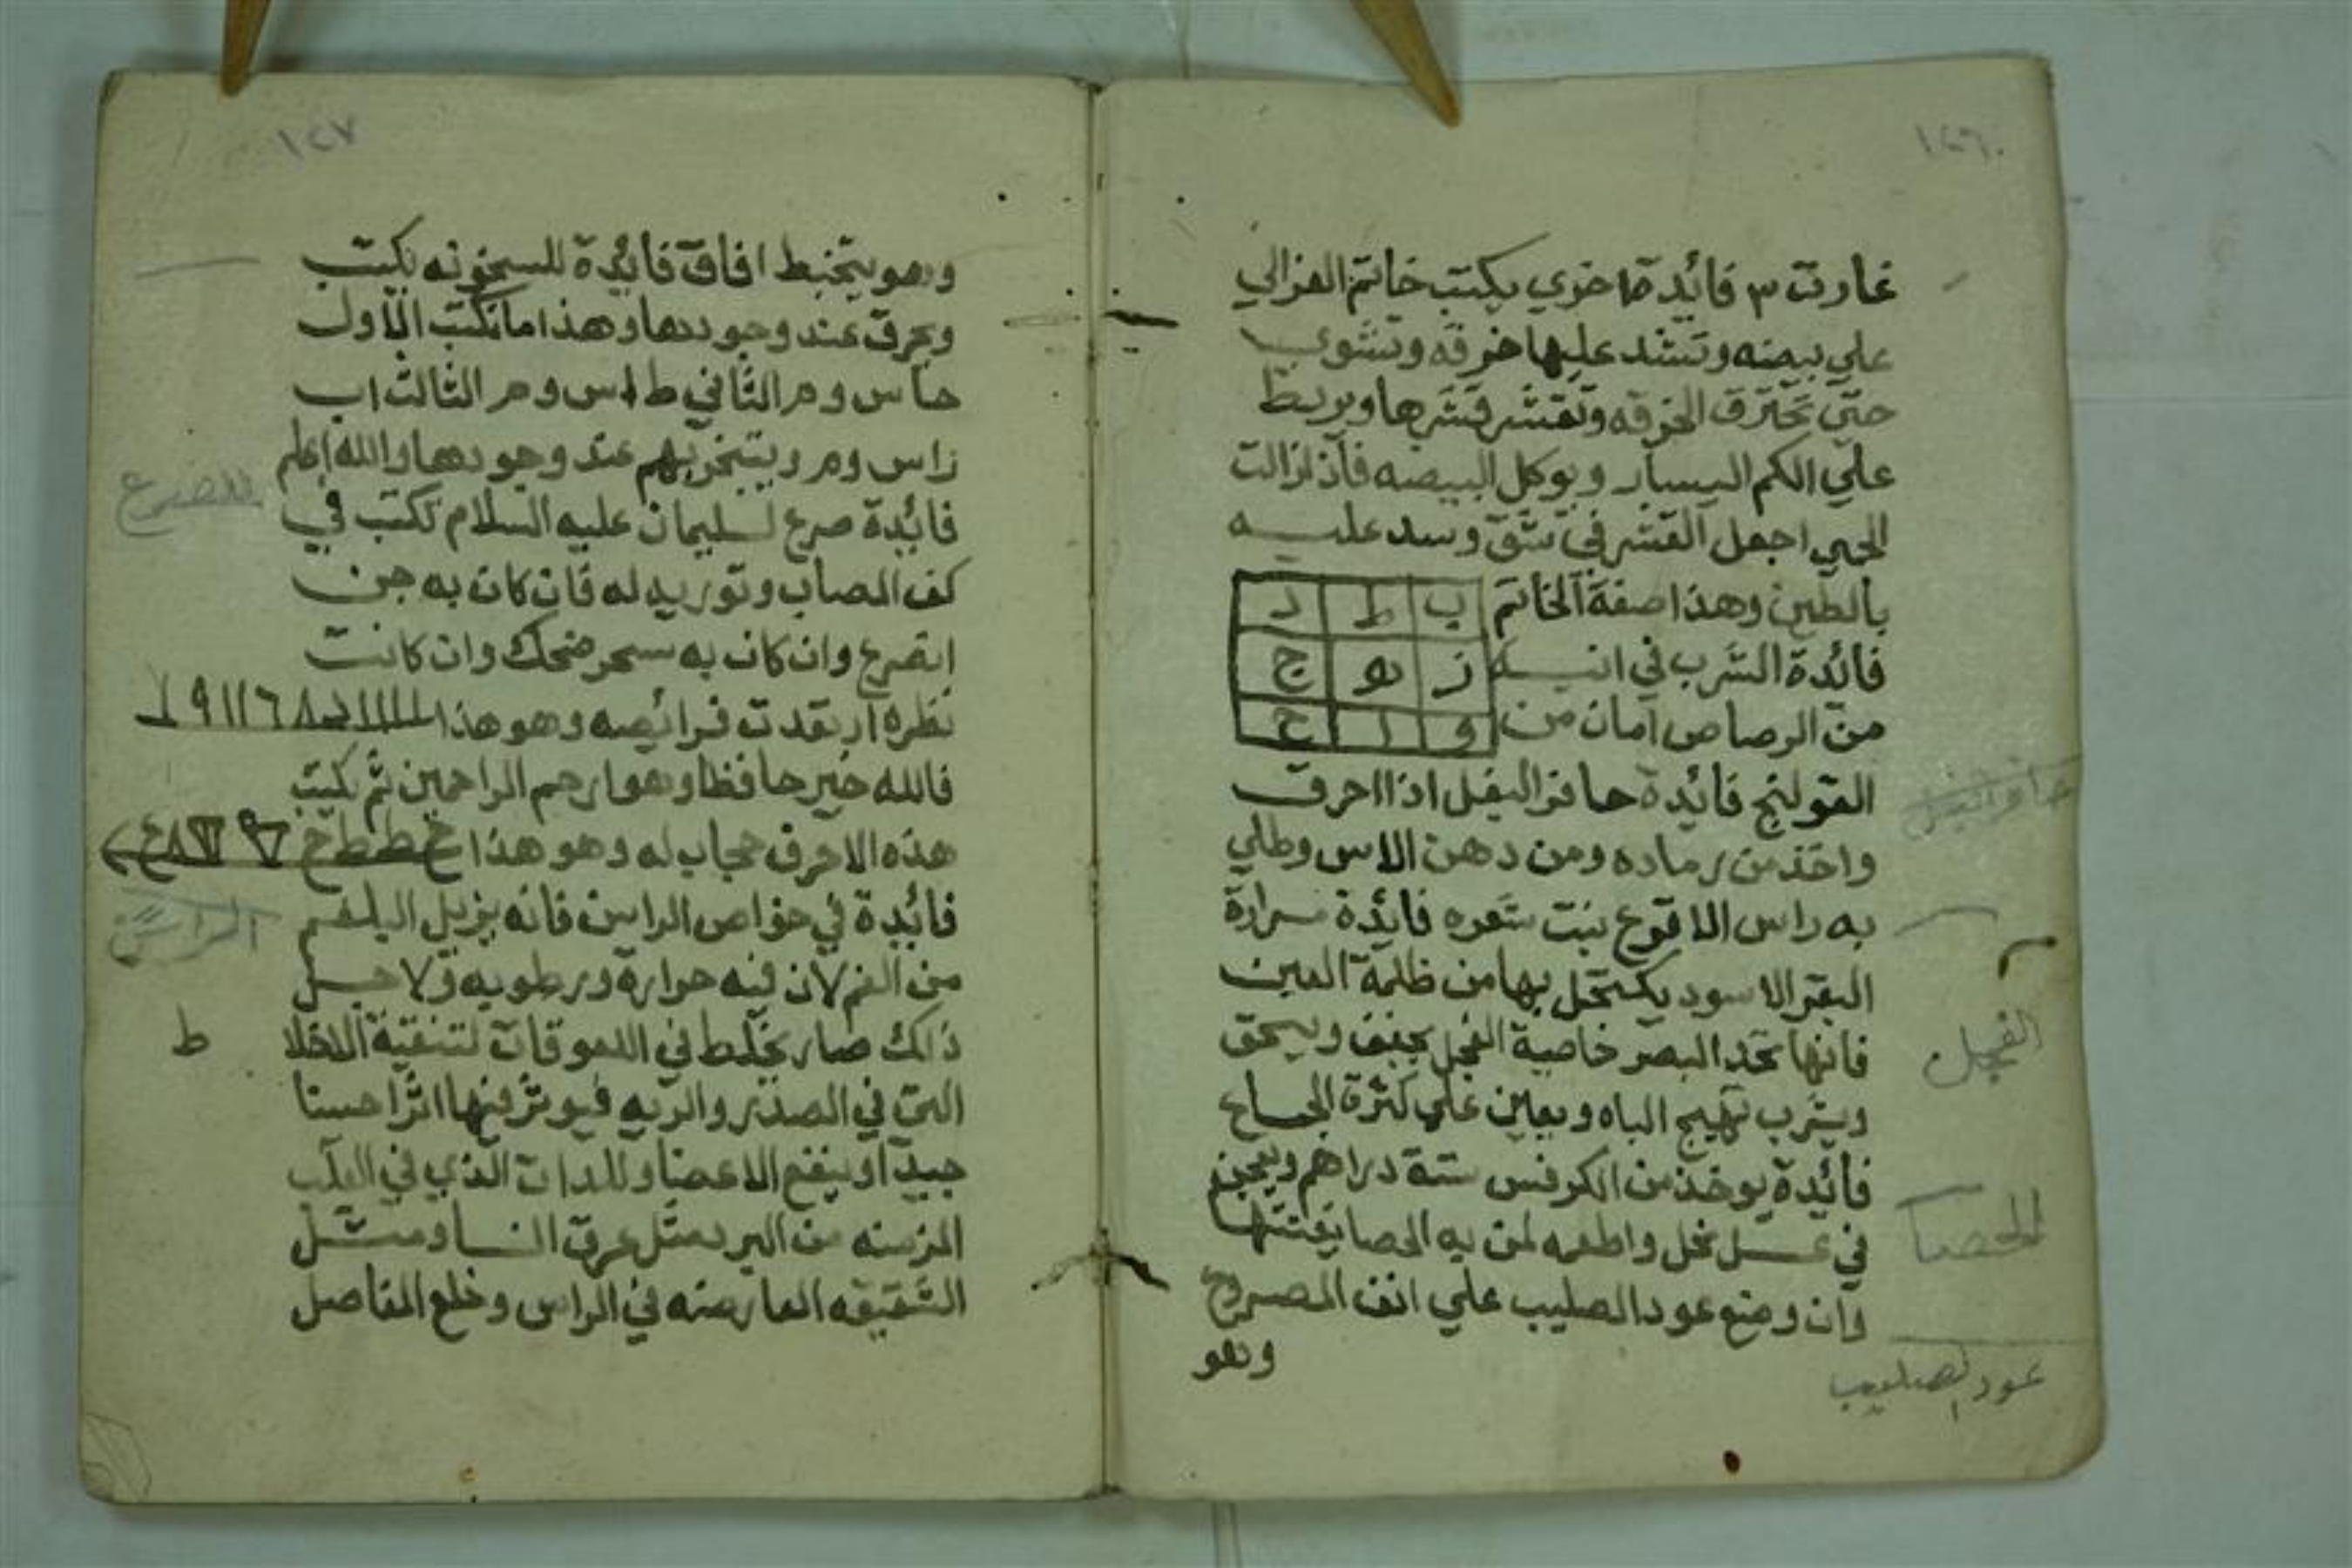 ١٢٦
غارت ٣ فائدة اخري يكتب خاتم الغزالي
علي بيضه وتشد عليها خرقه وتشوي
حتي تحترق الخرقه وتقشر قشرها ويربط
علي الكم اليسار ويوكل البيضه فاذا زالت
الحمي اجعل القشر في شق وسد عليه
بالطين وهذا صفة الخاتم
ب ط د
ز ه ج
و ا ح
فائدة الشرب في انيه
من الرصاص امان من
القولنج فائدة حافر البغل اذا احرق
واخذ من رماده ومن دهن الاس وطلي
به راس الاقرع نبت شعره فائدة مرارة
البقر الاسود يكتحل بها من ظلمة العين
فانها تحد البصر خاصية الفجل يجفف ويسحق
ويشرب تهيج الباه ويعين علي كثرة الجماع
فائدة يوخذ من الكرفس ستة دراهم ويعجن
في عسل نحل واطعمه لمن به الحصا يفتتها
وان وضع عود الصليب علي انف المصروع
وهو
حافر البغل
الفجل
الحصا
عود الصليب
١٢٧
وهو يتخبط افاق فائدة للسخونه يكتب
ويحرق عند وجودها وهذا ما تكتب الاول
حاس وم الثاني ط اس وم الثالث اب
زاس وم ويتبخر بهم عند وجودها والله اعلم
فائدة صرع لسليمان عليه السلام تكتب في
كف المصاب وتوريه له فان كان به جن
انصرع وان كان به سحر ضحك وان كانت
نظره ارتعدت فرائصه وهو هذا
فالله خير حافظا وهو ارحم الراحمين ثم تكتب
هذه الاحرف حجاب له وهو هذا
فائدة في خواص الراسن فانه يزيل البلغم
من الفم لان فيه حراره ورطوبه ولاجل
ذلك صار يخلط في اللعوقات لتنقية الاخلا
ط
التي في الصدر والريه فيوثر فيها اثرا حسنا
جيدا وينفع الاعضا وللدات الذي في القلب
المزمنه من البرد مثل عرق النسا ومثل
الشقيقه العارضه في الراس وخلع المفاصل
للصرع
الراسن